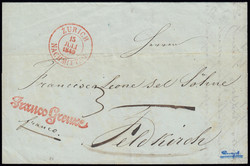 ZÜRICH
15
NACHMITTAG
Herrn
Francesco Leone del Söhne
Franco Grenze
franco.
Feldkirch